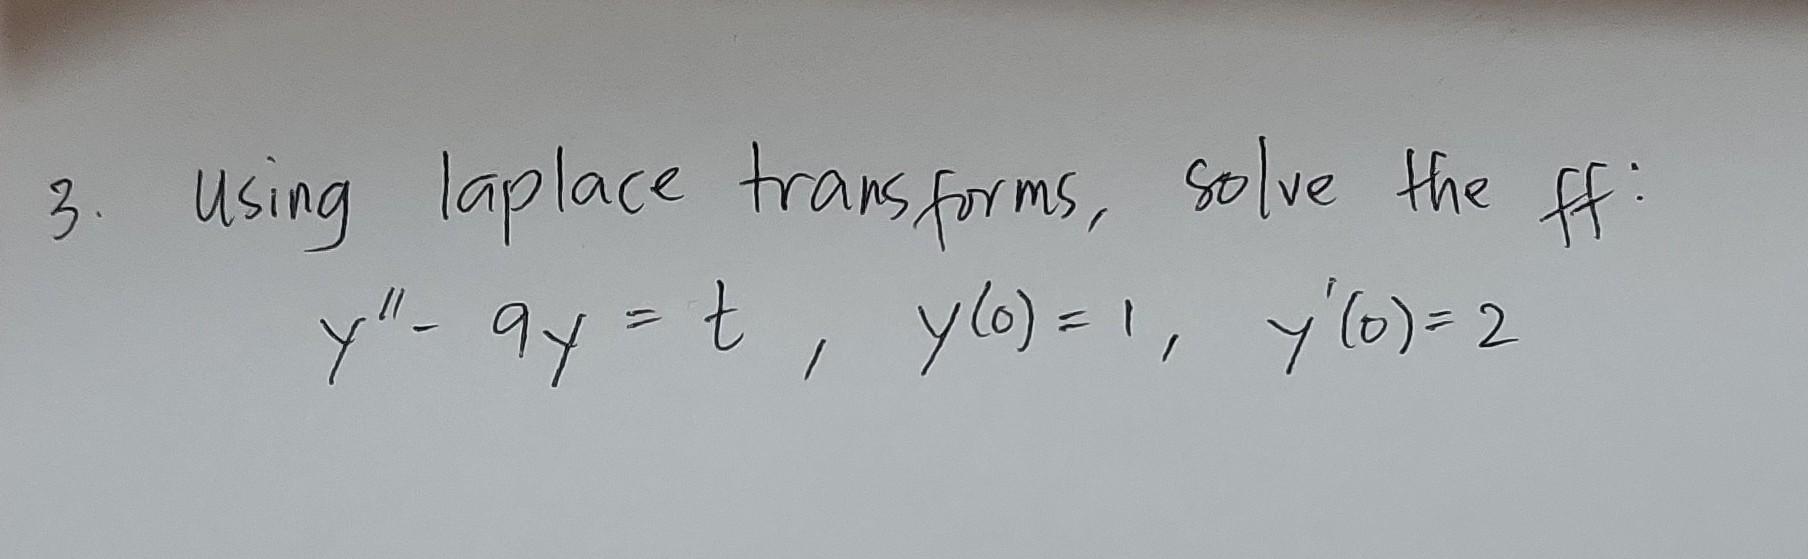 3. Using laplace transforms, solve the ff:
y" - 9y = t , y(0) = 1, y'(0) = 2